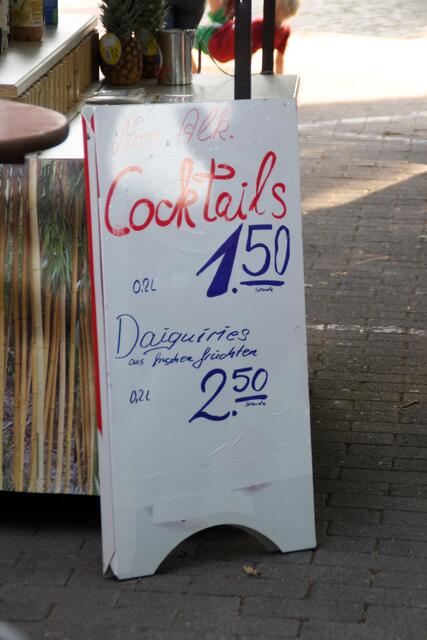 Non. Alk.
Cocktails
0.2L 1.50
Daiquiries
aus frischen früchten
0.2L 2.50